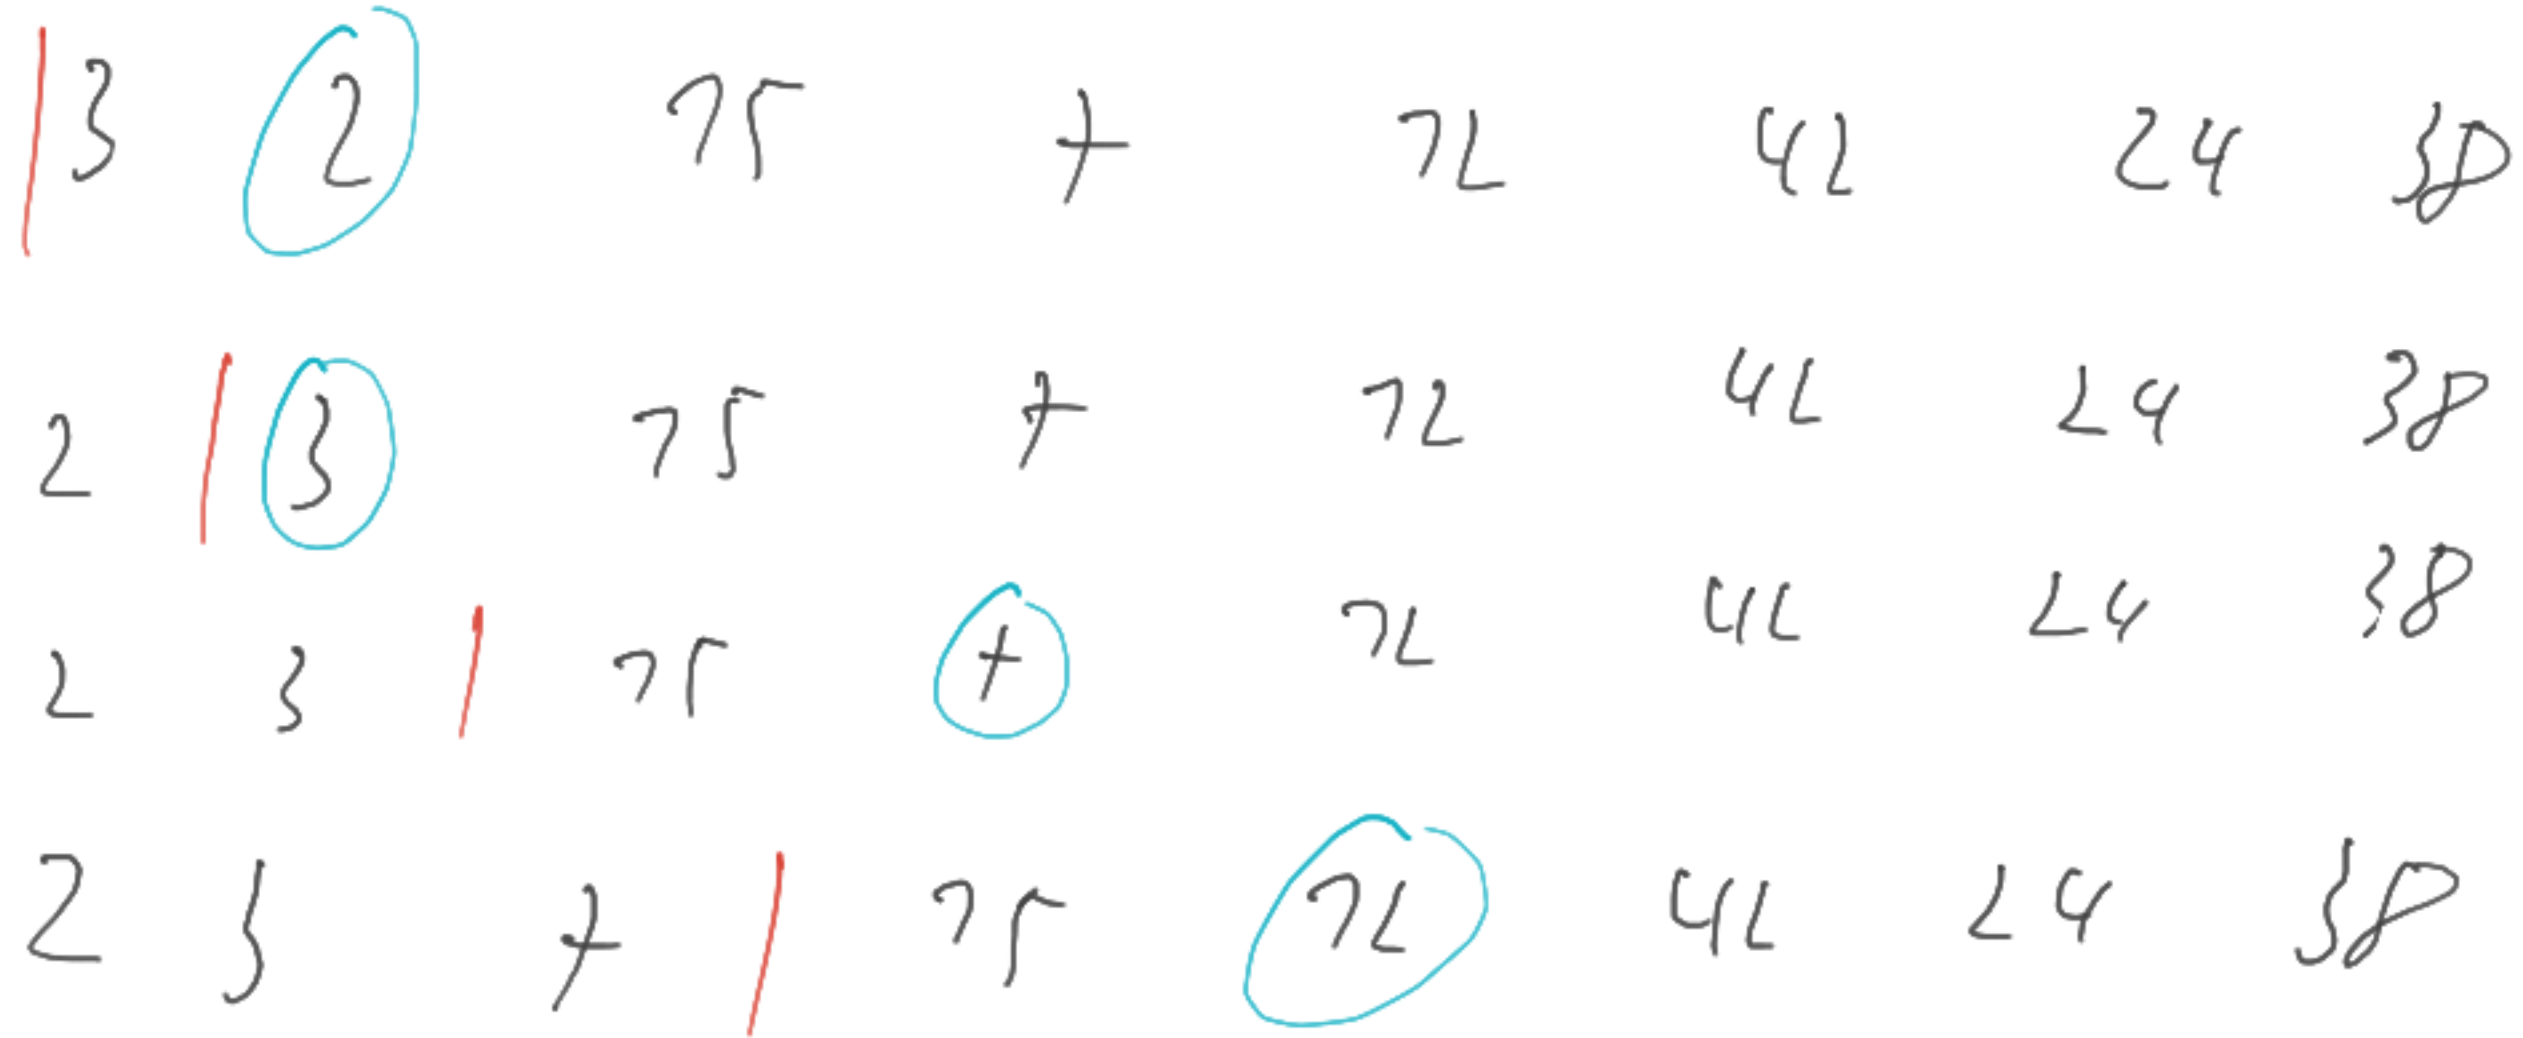 | 3 2 15 7 12 42 24 38
2 | 3 15 7 12 42 24 38
2 3 | 15 7 12 42 24 38
2 3 7 | 15 12 42 24 38